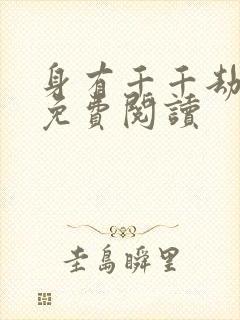 身有千千劫
免費閱讀
圭島瞬里